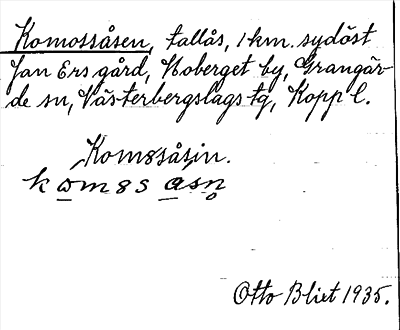 Komossåsen, tallås, 1 km. sydöst
Jan Ers gård, Noberget by, Grangär-
de sn, Västerbergslags tg, Kopp l.
Komssåsin.
Otto Blixt 1935.